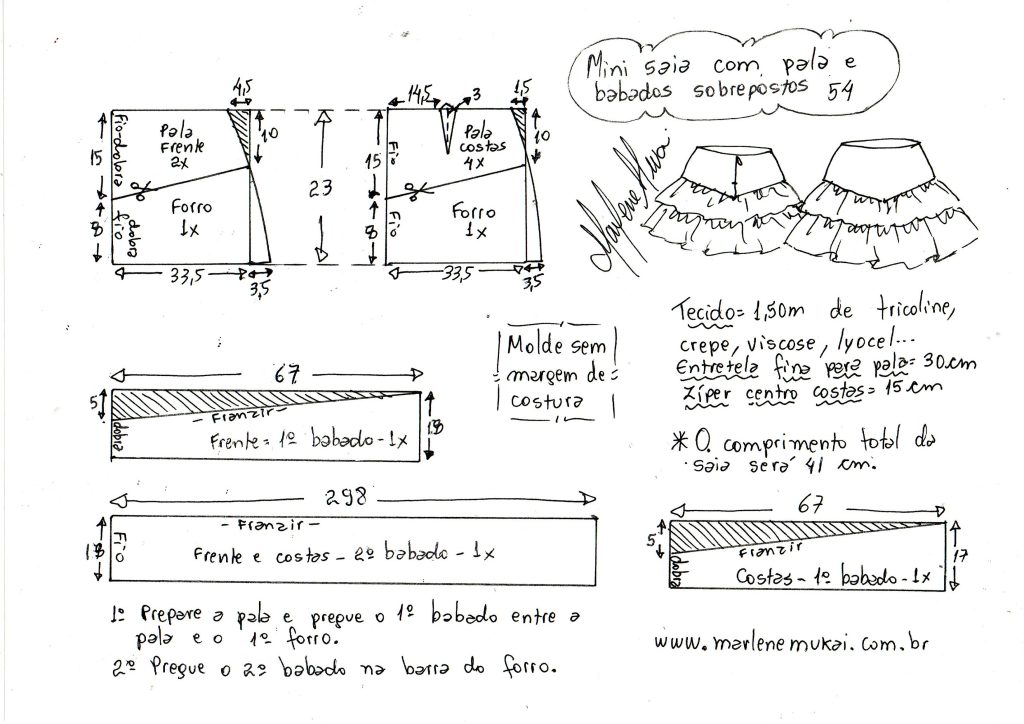 Mini saia com pala e
babados sobrepostos 54
Marlene Mukai
4,5
Fio-dobra
Pala
Frente
2x
10
15
Forro
1x
8
fio
dobra
33,5
3,5
23
14,5
3
1,5
Fio
Pala
costas
4x
10
15
Forro
1x
8
Fio
33,5
3,5
Tecido= 1,50m de tricoline,
crepe, viscose, lyocel...
Entretela fina para pala= 30.cm
Zíper centro costas= 15 cm
* O comprimento total da
saia será 41 cm.
Molde sem
margem de
costura
67
5
- Franzir -
dobra
Frente= 1º babado-1x
18
298
- Franzir -
18
Fio
Frente e costas - 2º babado - 1x
67
5
Franzir
dobra
Costas - 1º babado - 1x
17
1º Prepare a pala e pregue o 1º babado entre a
pala e o 1º forro.
2º Pregue o 2º babado na barra do forro.
www.marlenemukai.com.br